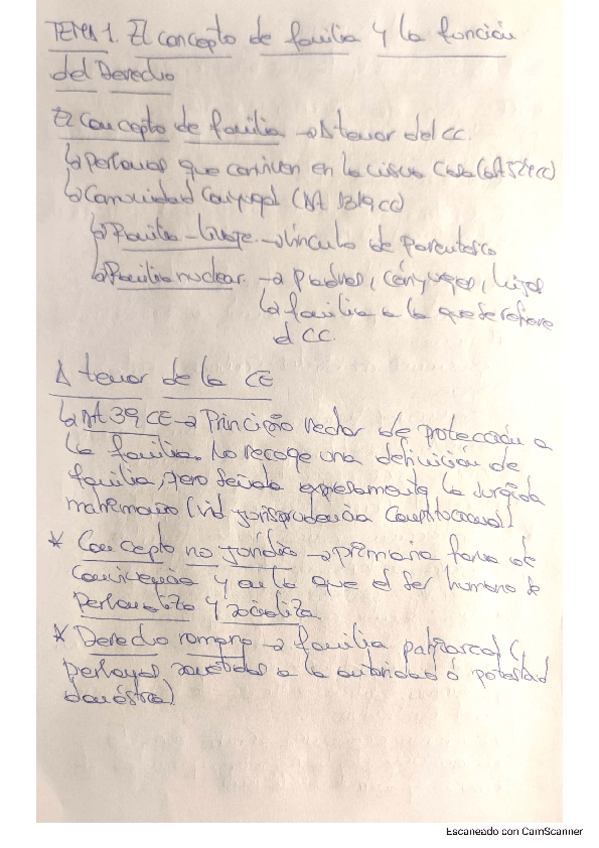 TEMA 1. El concepto de familia y la función
del Derecho
El concepto de familia → A tenor del CC.
↳ Personas que conviven en la misma casa (art 524 cc)
↳ Comunidad conyugal (Art 1319 cc)
↳ Familia-linaje → vínculo de parentesco
↳ Familia nuclear → padres, cónyuges, hijos
↳ familia a la que se refiere
el CC.
A tenor de la CE
↳ Art 39 CE → Principio rector de protección a
la familia. No recoge una definición de
familia, pero señala expresamente la surgida
matrimonio (vid jurisprudencia Constitucional)
* Concepto no jurídico → primaria forma de
convivencia y en la que el ser humano se
personaliza y socializa
* Derecho romano → familia patriarcal (
personas sometidas a la autoridad o potestad
doméstica)
Escaneado con CamScanner